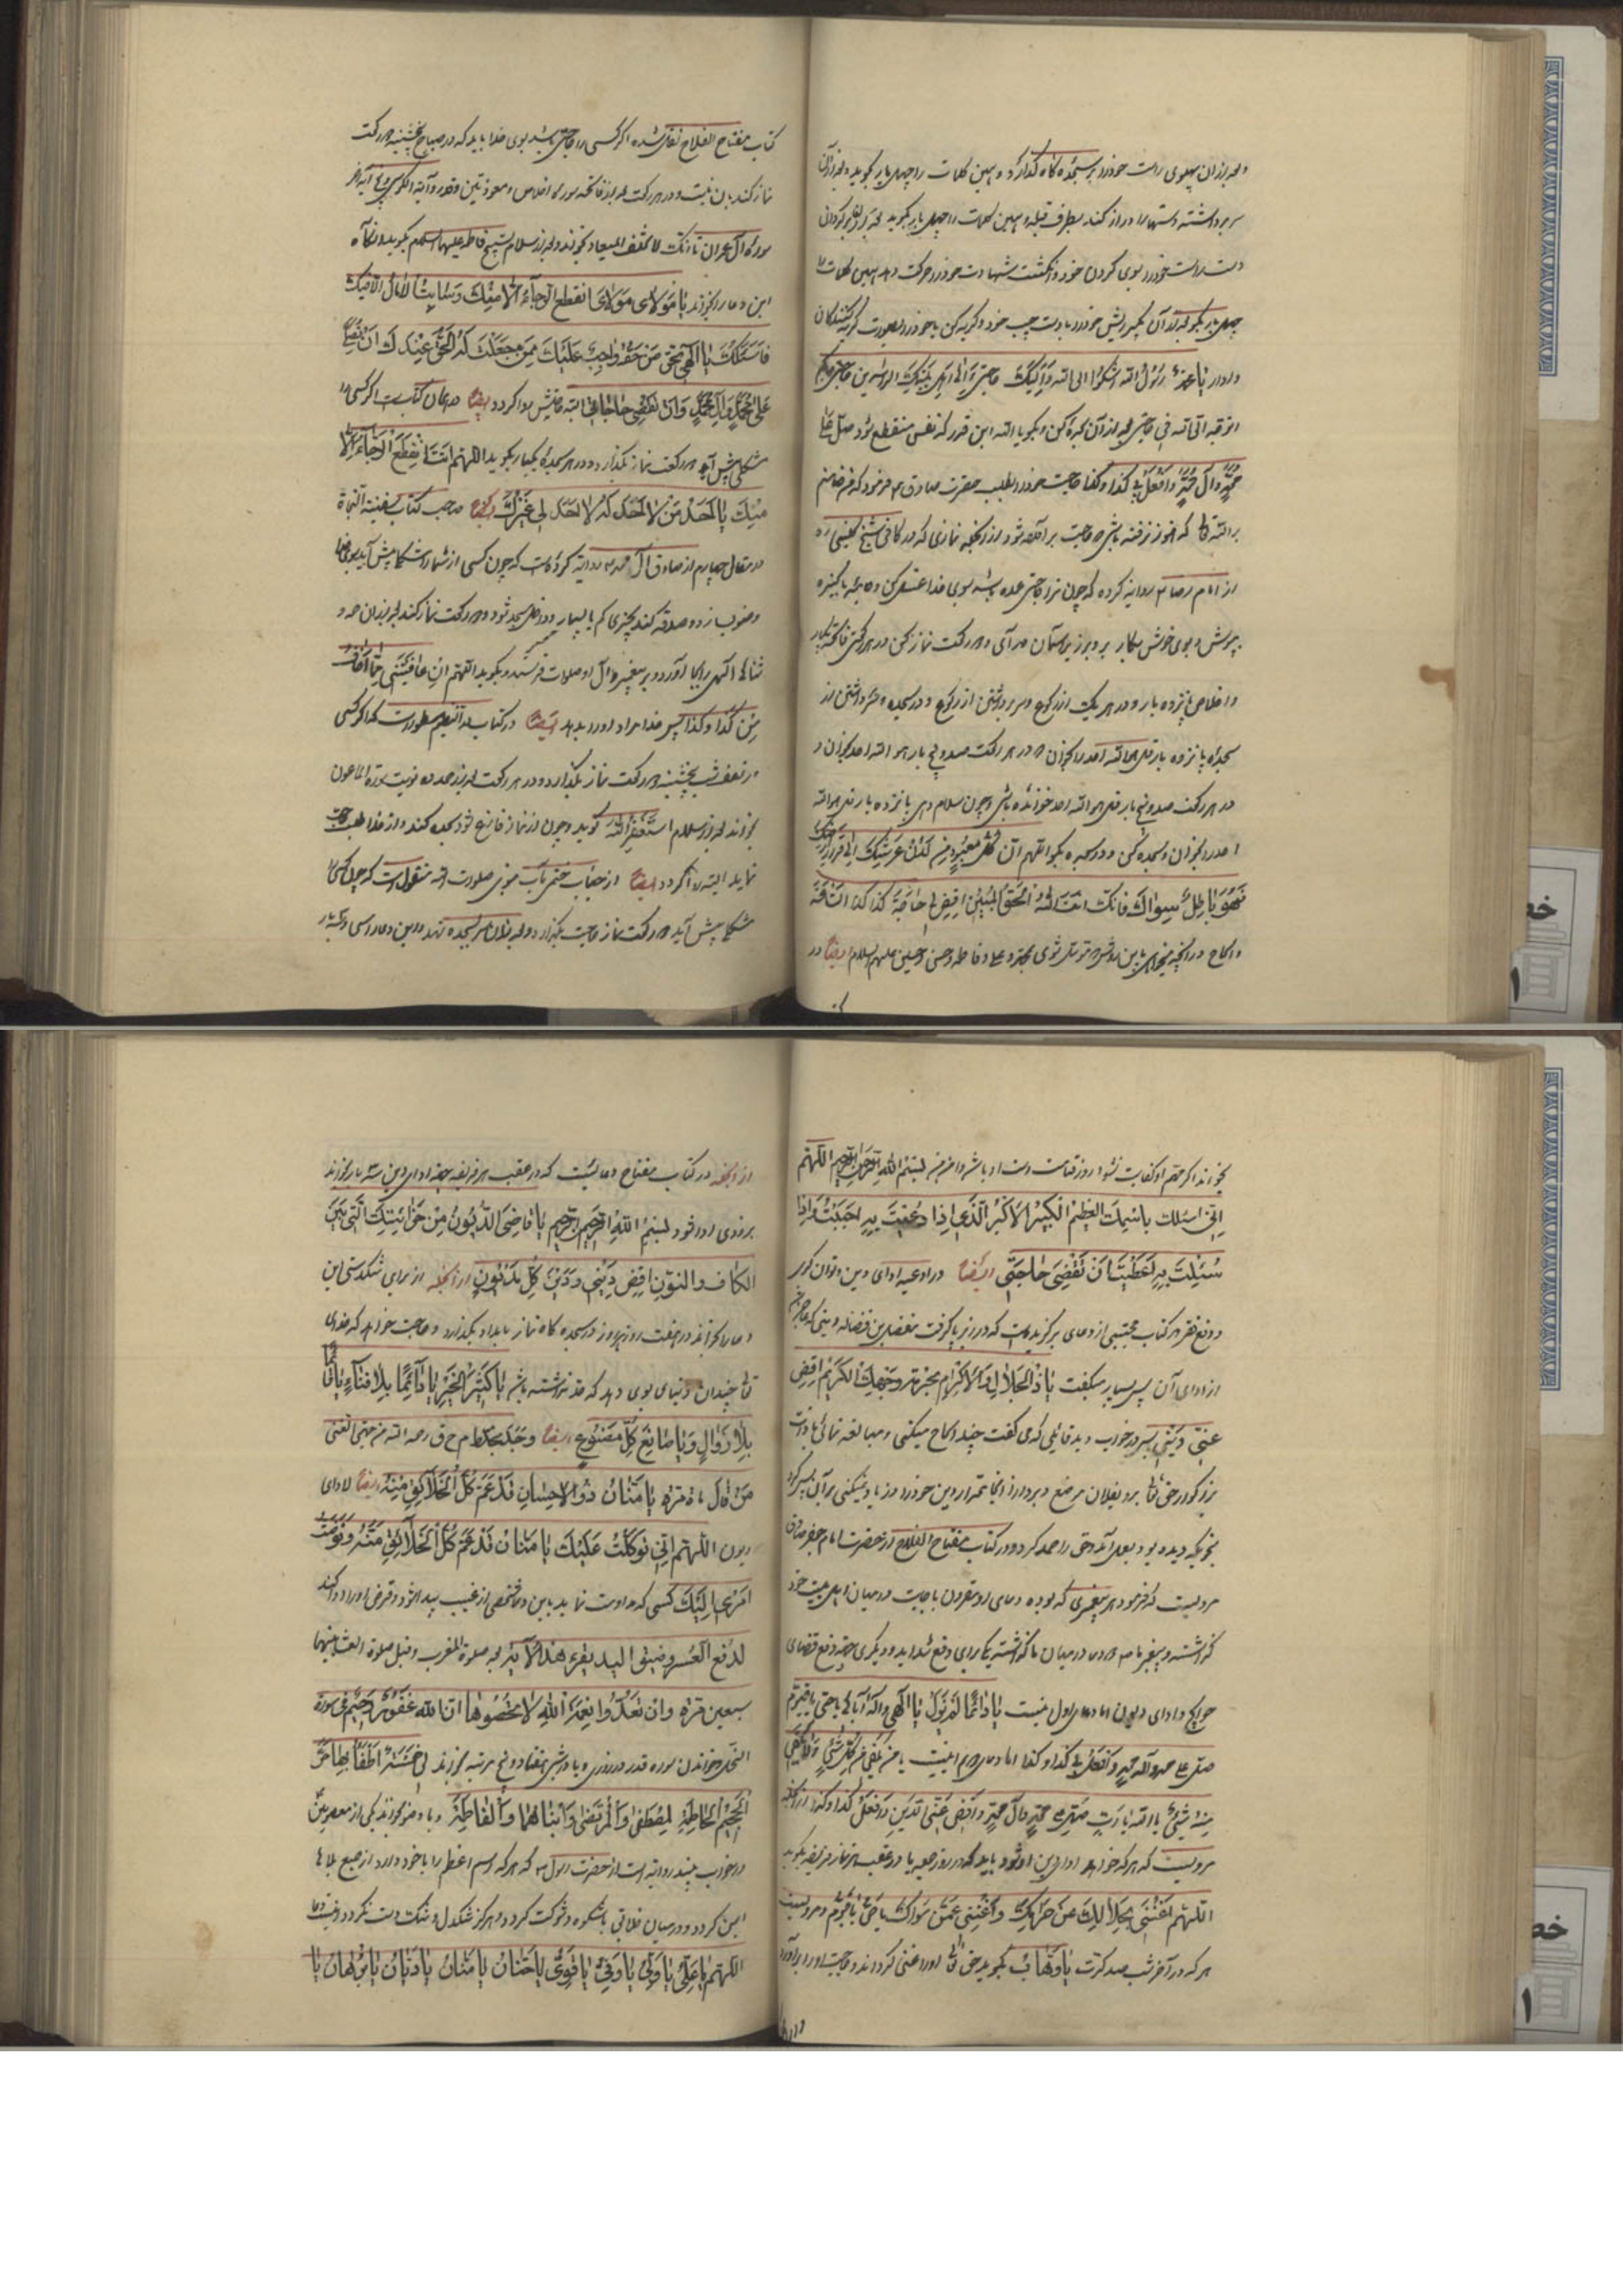 و بعد از آن پهلوی راست خود را بر سجده گاه گذارد و همین کلمات را چهل بار بگوید و بعد از آن
سر برداشته دستها را دراز کند بطرف قبله و همین کلمات را چهل بار بگوید
دست راست خود را بسوی گردن خود و انگشت شهادت خود را حرکت دهد همین کلمات را
چهل بار بگو بعد از آن بگیر ریش خود را بدست چپ خود و گریه کن یا خود را بصورت گریه کنندگان
وادار یا محمد یا رسول الله اشکوا الی الله و الیک حاجتی و الی اهل بیتک الراشدین حاجتی و بکم
اتوجه الی الله فی حاجتی بعد از آن سجده کن و بگو یا الله این قدر که نفس منقطع شود صل علی
محمد وآل محمد وافعل بی کذا و کذا حاجت خود را بطلب حضرت صادق ع فرمود که من ضامنم
بر الله تعالی که هنوز نرفته باشی که حاجت برآمده شود از آنجمله نمازی که در کافی شیخ کلینی ره
از امام رضا ع روایة کرده که چون ترا حاجتی عمده باشد بسوی خدا غسل کن و جامهٔ پاکیزه
بپوش و بوی خوش بکار بر و بزیر آسمان در آی و دو رکعت نماز کن در هر رکعتی فاتحه یکبار
و اخلاص پانزده بار و در هر یک از رکوع و سر برداشتن از رکوع و در سجده و سر داشتن از
سجده پانزده بار قل هو الله احد را بخوان
در هر رکعت صد و پنج بار قل هو الله احد خوانده باشی و چون سلام دهی پانزده بار قل هو الله
احد را بخوان و سجده کن و در سجده بگو اللهم ان کل معبود من لدن عرشک الی قرار ارضک
فهو باطل سواک فانک انت الله الحق المبین اقض لی حاجة کذا کذا الساعة الساعة
و الحاح در آنچه میخواهی باین روش متوسل شوی بمحمد و علی و فاطمه و حسن و حسین علیهم السلام ایضا در
کتاب مفتاح الفلاح نقل شده اگر کسی را حاجتی باشد بسوی خدا باید که در صباح پنجشنبه دو رکعت
نماز کند باین نیت و در هر رکعت بعد از فاتحه سورهٔ اخلاص و معوذتین و قدر و آیة الکرسی و پنج آیه آخر
سورهٔ آل عمران تا انک لا تخلف المیعاد بخواند و بعد از سلام تسبیح فاطمه علیها السلام بگوید و آنگاه
این دعا را بخواند یا مولای مولای انقطع الرجاء الا منک وخابت الآمال الا فیک
فاسئلک یا الهی بحق من حقه واجب علیک ممن جعلت له الحق عندک ان تصلی
علی محمد وآل محمد وان تقضی حاجاتی البته حاجتش روا گردد ایضا در همان کتابست اگر کسی را
مشکلی پیش آید دو رکعت نماز بگذارد و در هر سجده یکبار بگوید اللهم انت انقطع الرجاء الا
منک یا احد من لا احد له لا احد لی غیرک ایضا صاحب کتاب سفینة النجاة
در مقال چهارم از صادق آل محمد ع روایة کرده است که چون کسی از شما را مشکلی پیش آید بسوی خدا
وضو بسازد و صدقه کند بچیزی کم یا بسیار و داخل مسجد شود و دو رکعت نماز کند بعد از آن حمد و
ثنای الهی را بجا آورد و بر پیغمبر و آل او صلوات فرستد و بگوید اللهم ان عافیتنی مما اخاف
من کذا وکذا پس خدا مراد او را بدهد ایضا در کتاب مسطورست که اگر کسی
در نصف شب پنجشنبه دو رکعت نماز بگذارد و در هر رکعت بعد از حمد ده نوبت سورة الماعون
بخواند بعد از سلام استغفر الله گوید و چون از نماز فارغ شود سجده کند و از خدا طلب حاجت
نماید البته روا گردد ایضا از جناب ختمی مآب نبوی صلوات الله منقول است که چون کسی را
مشکلی پیش آید دو رکعت نماز حاجت بگذارد و بعد از آن سر بسجده نهد و این دعا را سی و یکبار
بخواند اگر مهم او کفایت نشود روز قیامت دست او باشد و دامن من بسم الله الرحمن الرحیم اللهم
انی اسئلک باسمک العظیم الکبیر الاکبر الذی اذا دعیت به اجبت واذا
سئلت به اعطیت ان تقضی حاجتی ایضا در ادعیه ادای دین و توانگری
و دفع فقر در کتاب مجتبی از دعای برگزیده است که در زیر پا گرفت
از ادای آن پس بسیار میگفت یا ذا الجلال والاکرام بحرمة وجهک الکریم اقض
عنی دینی پس در خواب دید قائلی که می گفت چند الحاح میکنی و مبالغه نمائی
بنحویکه دیده بود بعمل آمد و حق را حمد کرد و در کتاب مفتاح الفلاح از حضرت امام جعفر صادق
مرویست که فرمود هر پیغمبری که بوده دعای او مقرون باجابت در میان اهل بیت خود
گذاشته و پیغمبر ما ص دو دعا در میان ما گذاشته یکی برای دفع شداید و دیگری جهة دفع قضای
حوایج و ادای دیون اما دعای اول اینست یا دائما لم یزل یا الهی واله آبائی یا حی یا قیوم
صل علی محمد وآله محمد وافعل بی کذا و کذا اما دعای دوم اینست یا من یکفی من کل شئ ولا یکفی
منه شئ یا الله یا رب صل علی محمد وآل محمد واقض عنی الدین وافعل کذا وکذا از آنجمله
مرویست که هر که خواهد ادای دین او شود باید که در روز جمعه یا در عقب هر نماز فریضه بگوید
اللهم اغننی بحلالک عن حرامک واغننی عمن سواک یا حی یا قیوم و مرویست
هر که در آخر شب صد کرت یا وهاب بگوید حق تعالی او را غنی گرداند و حاجت او را برآورد
از آنجمله در کتاب مفتاح دعائیست که در عقب هر فریضه جهة ادای دین سه بار بخواند
بزودی ادا شود بسم الله الرحمن الرحیم یا قاضی الدیون من خزائنک التی بین
الکاف والنون اقض دینی ودین کل مدیون از آنجمله از برای تنگدستی این
دعا را بخواند در هفت روز هر روز در سجده گاه نماز بامداد بگذارد و حاجت خواهد که خدای
تعالی چندان دنیای بوی دهد که قدر نداشته باشد یا کثیر الخیر یا دائما بلا فناء یا قائما
بلا زوال ویا صانع کل مصنوع ایضا وجد بخط ام ح ق رحمه الله من جهة الغنی
من قال مرة یا منان ذو الاحسان قد عم کل الخلائق منه ایضا لادای
دیون اللهم انی توکلت علیک یا منان قد عم کل الخلائق منه وفوضت
امری الیک کسی که مداومت نماید باین دعا شخصی از غیب پیدا شود و قرض او را ادا کند
لدفع العسر وضیق الید یقرء هذا الآیة بعد صلوة المغرب وقبل صلوة العشا بینهما
سبعین مرة وان تعدوا نعمة الله لا تحصوها ان الله لغفور رحیم فی سورة
النحل و خواندن سوره قدر در روزی و یا در شبی هفتاد و پنج مرتبه بخواند لی خمسة اطفی بها حر
الجحیم الحاطمة المصطفی والمرتضی وابناهما والفاطمة
در خواب پسند روایة است از حضرت رسول ص که هر که اسم اعظم را با خود دارد از جمیع بلاها
ایمن گردد و در میان خلائق با شکوه و شوکت گردد و هرگز تنگدل و تنگدست نگردد اینست دعا
اللهم یا علی یا ولی یا وفی یا قوی یا حنان یا منان یا دیان یا برهان یا